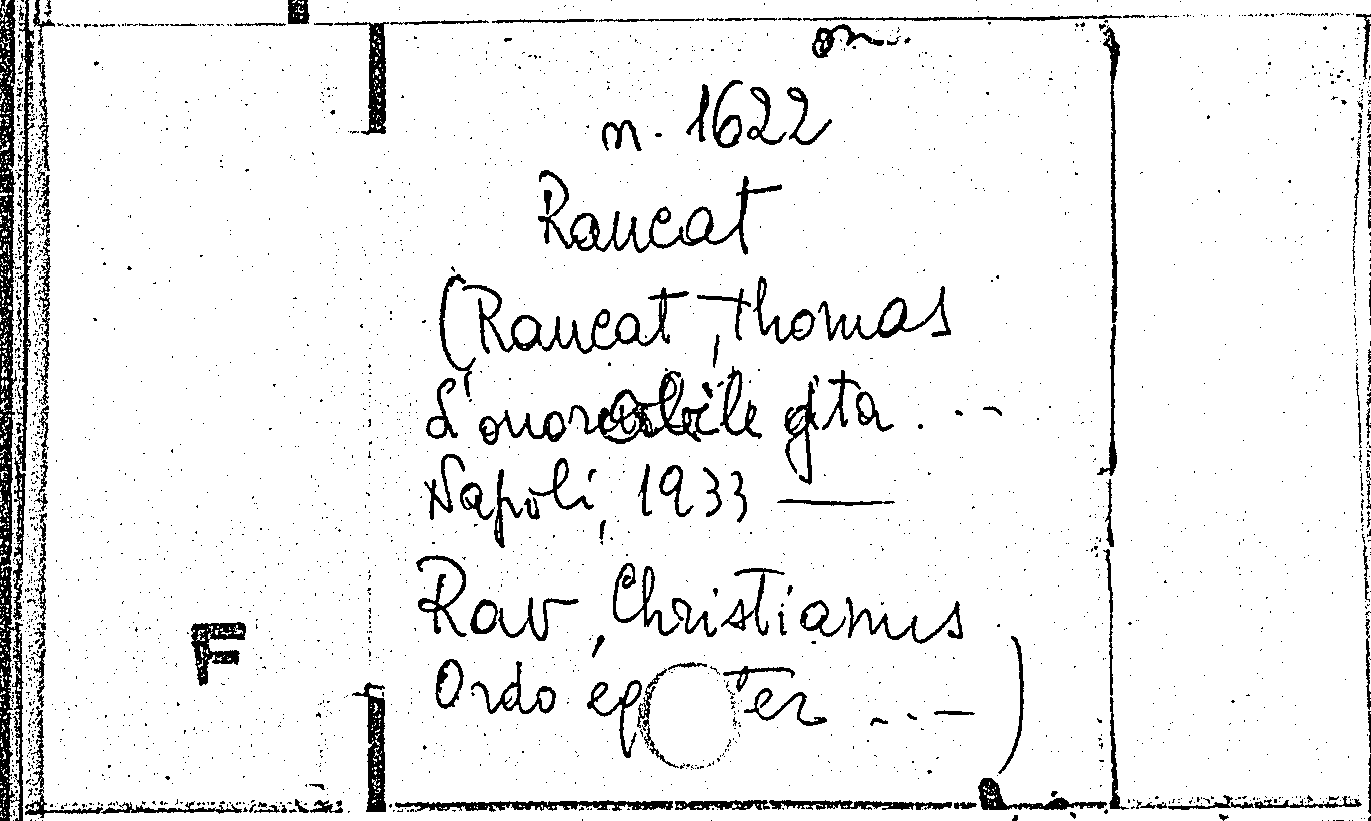 on.
n. 1622
Raucat
(Raucat, Thomas
L'onorabile gita . . -
Napoli, 1933 —
Rav, Christianus
Ordo eq ter . . . —)
F